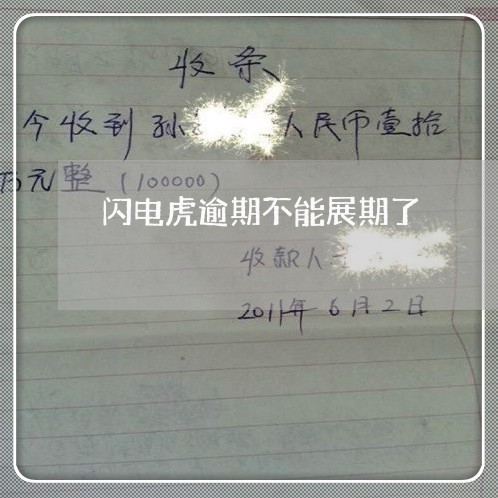 收条
今收到孙 人民币壹拾
万元整(100000)
闪电虎逾期不能展期了
收款人
2011年6月2日